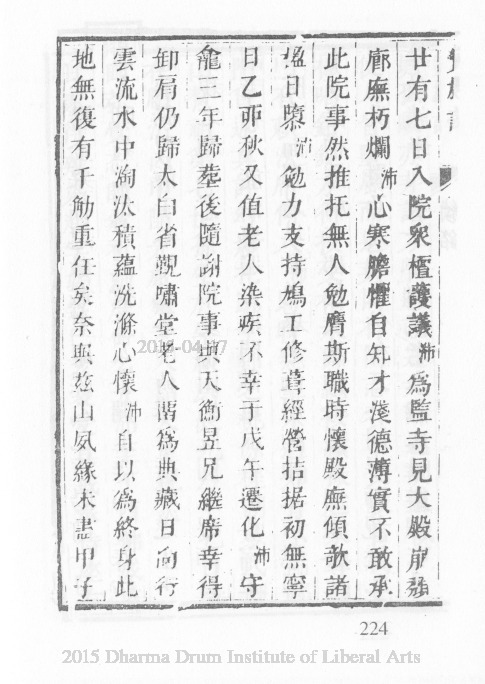 廿有七日入院眾檀護議沛為監寺見大殿崩頹
廊廡朽爛沛心寒膽懼自知才淺德薄實不敢承
此院事然推托無人勉膺斯職時懷殿廡傾欹諸
日墮沛勉力支持鳩工修葺經營拮据初無寧
日乙卯秋又值老人染疾不幸于戊午遷化沛守
龕三年歸墖後隨謝院事與天衡昱兄繼席幸得
卸肩仍歸太白省覲嘯堂老人留為典藏日向行
雲流水中洶汰積蘊洗滌心懷沛自以為終身此
地無復有千觔重任矣奈與茲山夙緣未盡甲子
2015-04-07
224
2015 Dharma Drum Institute of Liberal Arts